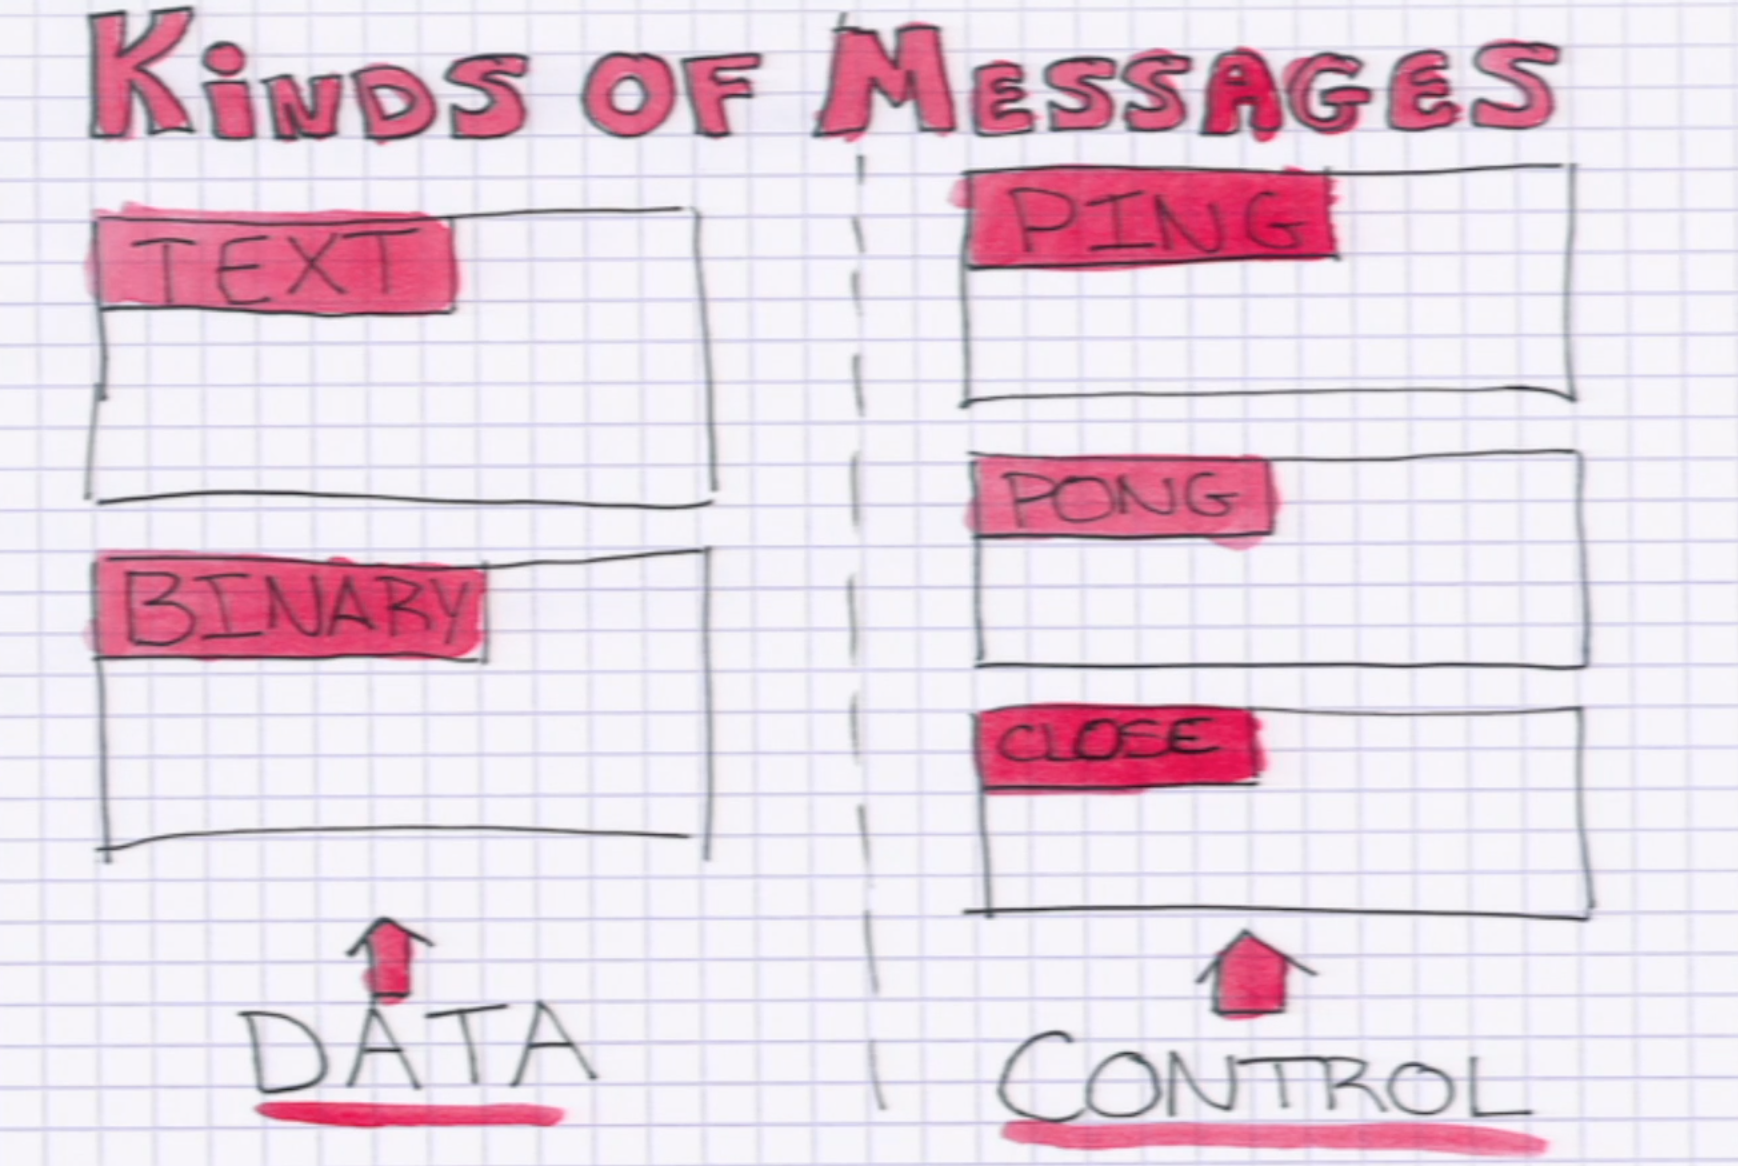 KiNDS OF MESSAGES
TEXT
BINARY
DATA
PING
PONG
CLOSE
CONTROL